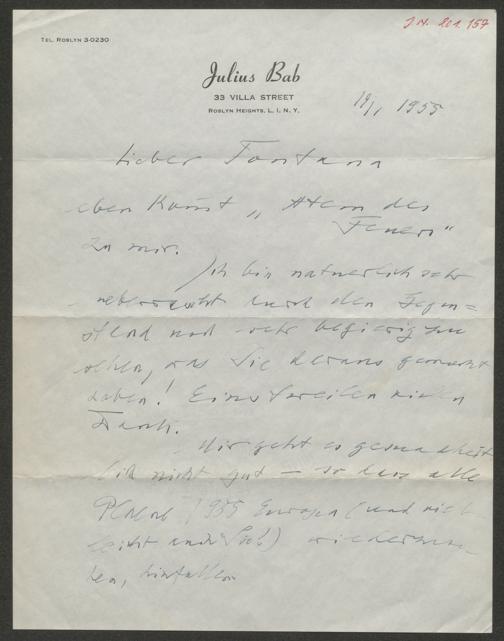 J.N. 201.154
TEL. ROSLYN 3-0230
Julius Bab
33 VILLA STREET
ROSLYN HEIGHTS, L. I., N. Y.
19/1 1955
Lieber Fontana
eben kommt „Atem des
Feuers“
zu mir.
Ich bin natuerlich sehr
ueberrascht durch den Gegen=
stand und sehr begierig zu
sehen, was Sie daraus gemacht
haben! Einstweilen vielen
Dank.
Mir geht es gesundheit
lich nicht gut — so dass alle
Plaene 1955 Europa (und viel
leicht auch Sie!) wiederzuse=
hen, hinfallen